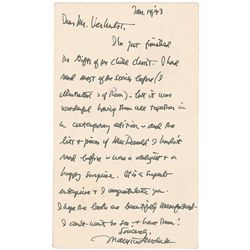 Jan 14/73
Dear Mr.
I've just finished
the Gifts of the Child Christ. I had
read most of the stories before (I
illustrated 2 of them). Yet it was
wonderful having them all together in
a contemporary edition - and the
bits + pieces of MacDonald I hadn't
read before - was a delight + a
happy surprise. It is a superb
enterprise + I congratulate you.
I hope the books are beautifully
I can't wait to see + have them!
Sincerely,
Maurice Sendak